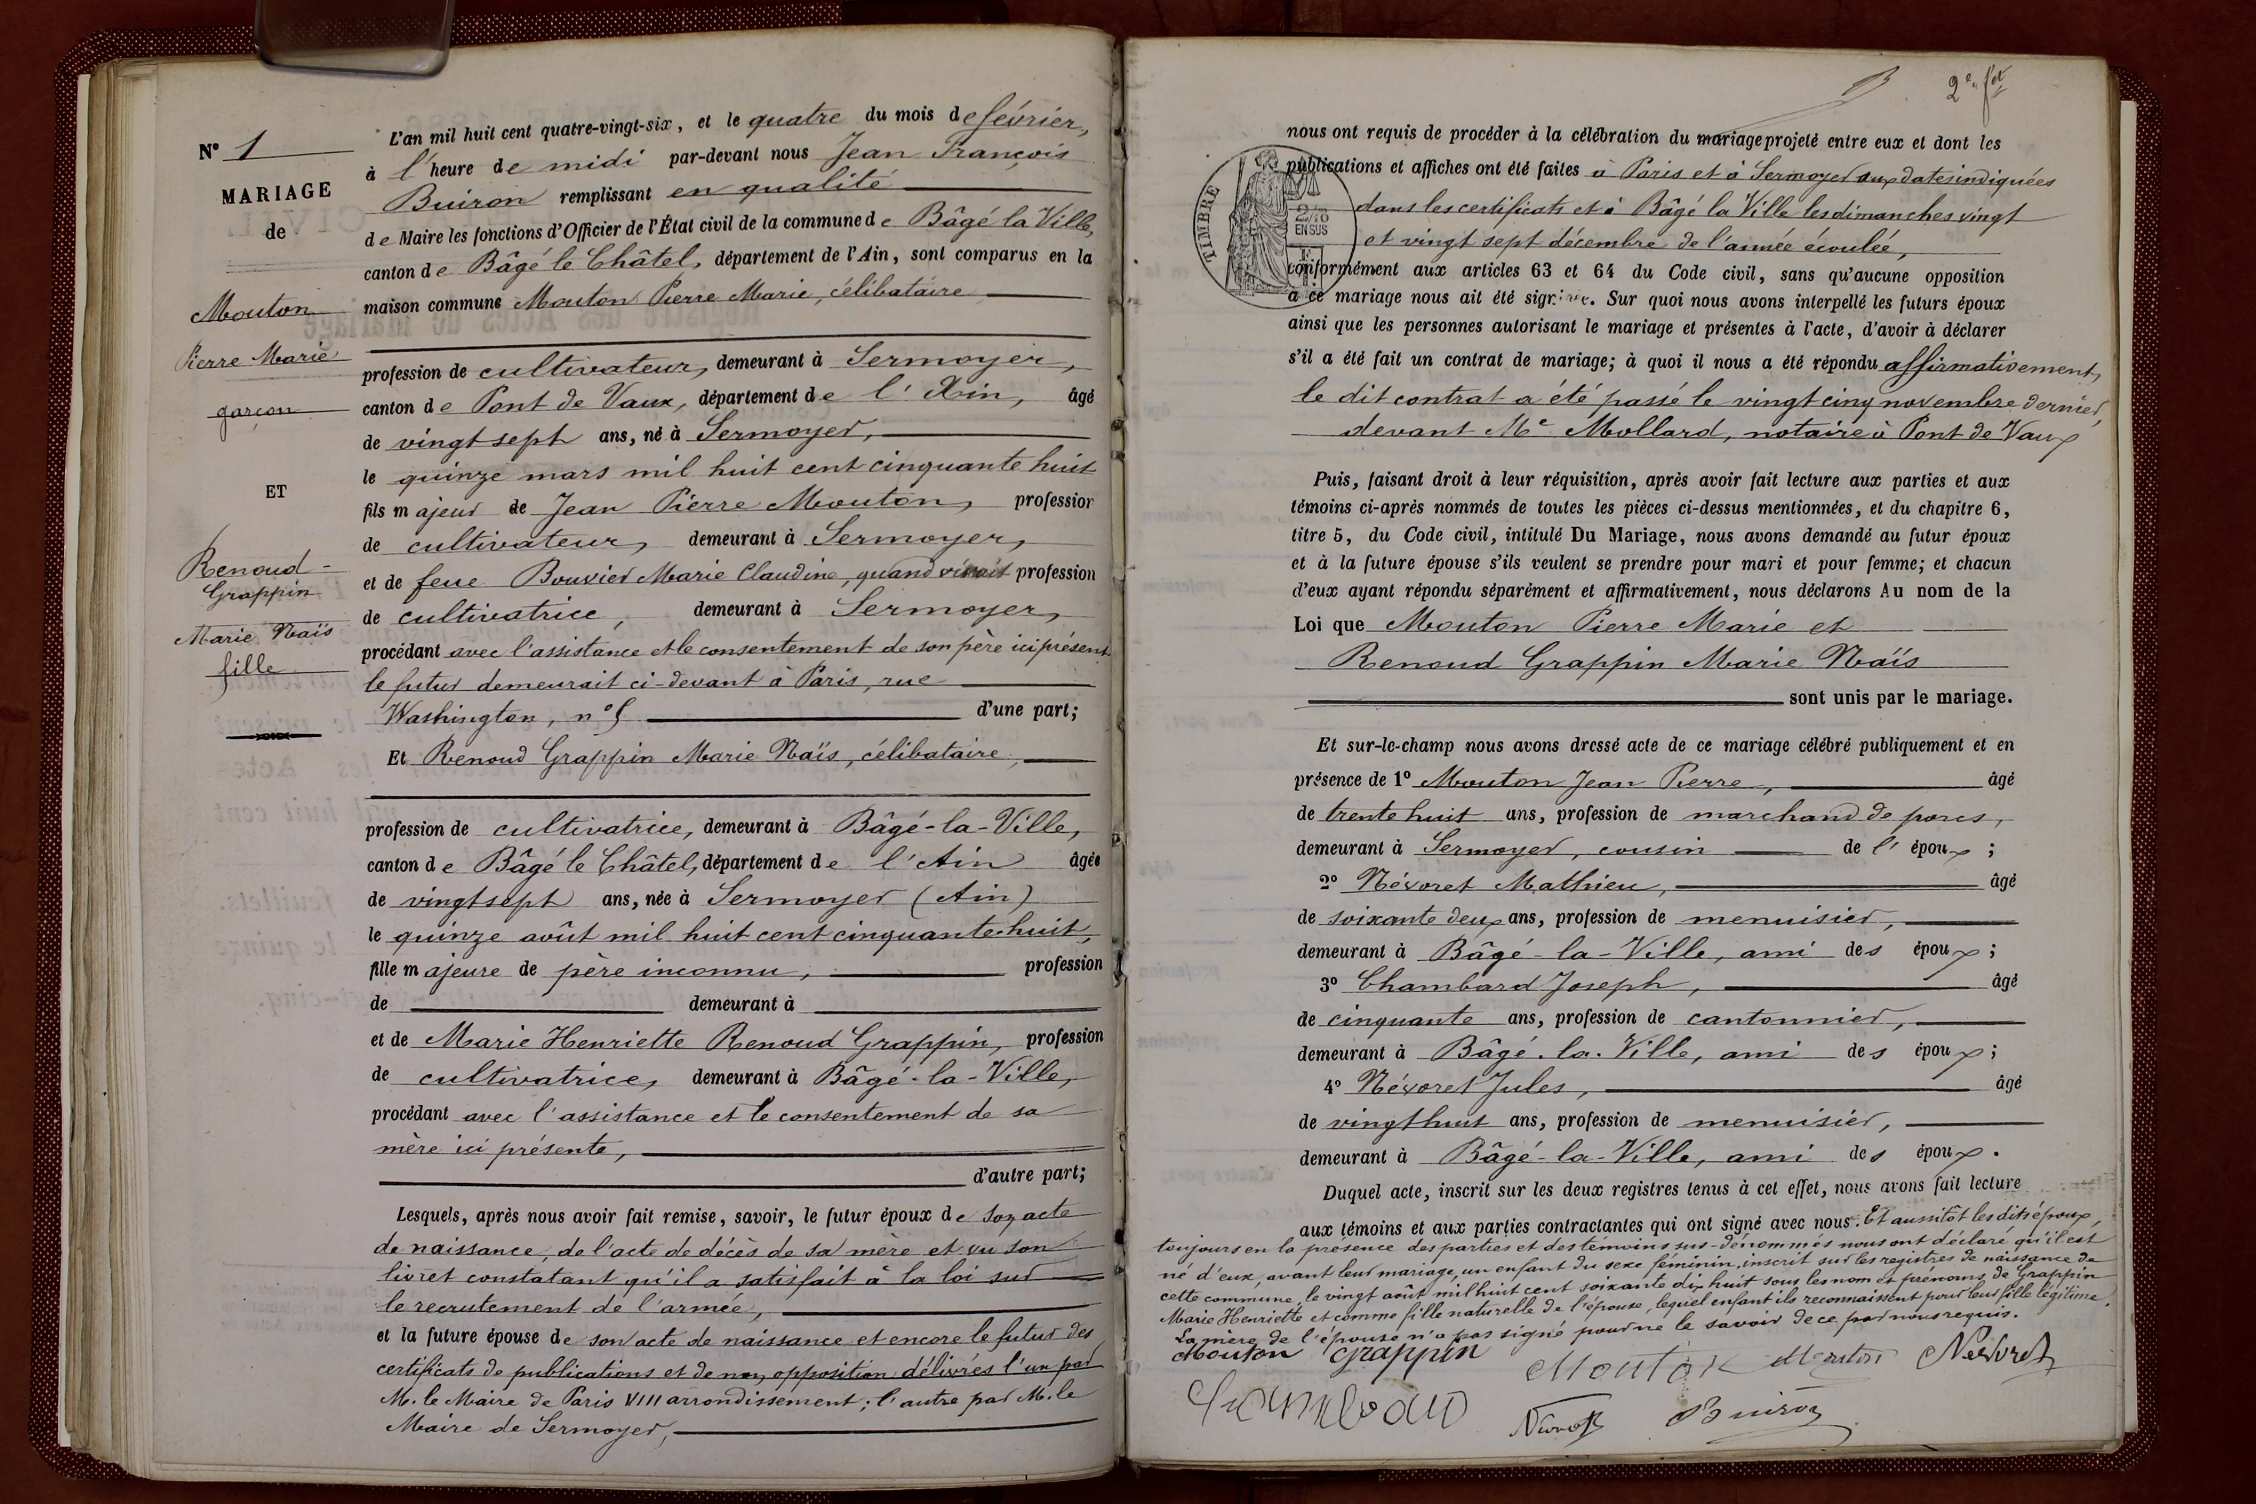 N° 1
MARIAGE
de
Mouton
Pierre Marie
garçon
ET
Renoud-
Grappin
Marie Naïs
fille
L'an mil huit cent quatre-vingt-six, et le quatre du mois de février,
à l'heure de midi par-devant nous Jean François
Buiron remplissant en qualité
de Maire les fonctions d'Officier de l'État civil de la commune de Bâgé la Ville,
canton de Bâgé le Châtel, département de l'Ain, sont comparus en la
maison commune Mouton Pierre Marie, célibataire
profession de cultivateur, demeurant à Sermoyer,
canton de Pont de Vaux, département de l'Ain, âgé
de vingt sept ans, né à Sermoyer,
le quinze mars mil huit cent cinquante huit
fils majeur de Jean Pierre Mouton, profession
de cultivateur, demeurant à Sermoyer,
et de feue Bouvier Marie Claudine, quand vivait profession
de cultivatrice, demeurant à Sermoyer,
procédant avec l'assistance et le consentement de son père ici présent
le futur demeurait ci-devant à Paris, rue
Washington, n° 5 d'une part;
Et Renoud Grappin Marie Naïs, célibataire,
profession de cultivatrice, demeurant à Bâgé-la-Ville,
canton de Bâgé le Châtel, département de l'Ain âgée
de vingt sept ans, née à Sermoyer (Ain)
le quinze août mil huit cent cinquante-huit,
fille majeure de père inconnu, profession
de demeurant à
et de Marie Henriette Renoud Grappin, profession
de cultivatrice, demeurant à Bâgé-la-Ville,
procédant avec l'assistance et le consentement de sa
mère ici présente,
d'autre part;
Lesquels, après nous avoir fait remise, savoir, le futur époux de son acte
de naissance, de l'acte de décès de sa mère et vu son
livret constatant qu'il a satisfait à la loi sur
le recrutement de l'armée,
et la future épouse de son acte de naissance et encore le futur des
certificats de publications et de non opposition délivrés l'un par
M. le Maire de Paris VIII arrondissement; l'autre par M. le
Maire de Sermoyer,
2e fet
nous ont requis de procéder à la célébration du mariage projeté entre eux et dont les
publications et affiches ont été faites à Paris et à Sermoyer aux dates indiquées
dans les certificats et à Bâgé la Ville les dimanches vingt
et vingt sept décembre de l'année écoulée,
TIMBRE
2/10
EN SUS
conformément aux articles 63 et 64 du Code civil, sans qu'aucune opposition
à ce mariage nous ait été signifiée. Sur quoi nous avons interpellé les futurs époux
ainsi que les personnes autorisant le mariage et présentes à l'acte, d'avoir à déclarer
s'il a été fait un contrat de mariage; à quoi il nous a été répondu affirmativement,
le dit contrat a été passé le vingt cinq novembre dernier,
devant Me Mollard, notaire à Pont de Vaux
Puis, faisant droit à leur réquisition, après avoir fait lecture aux parties et aux
témoins ci-après nommés de toutes les pièces ci-dessus mentionnées, et du chapitre 6,
titre 5, du Code civil, intitulé Du Mariage, nous avons demandé au futur époux
et à la future épouse s'ils veulent se prendre pour mari et pour femme; et chacun
d'eux ayant répondu séparément et affirmativement, nous déclarons Au nom de la
Loi que Mouton Pierre Marie et
Renoud Grappin Marie Naïs
sont unis par le mariage.
Et sur-le-champ nous avons dressé acte de ce mariage célébré publiquement et en
présence de 1° Mouton Jean Pierre, âgé
de trente huit ans, profession de marchand de porcs,
demeurant à Sermoyer, cousin de l'époux;
2° Névoret Mathieu, âgé
de soixante deux ans, profession de menuisier,
demeurant à Bâgé-la-Ville, ami des époux;
3° Chambard Joseph, âgé
de cinquante ans, profession de cantonnier,
demeurant à Bâgé-la-Ville, ami des époux;
4° Névoret Jules, âgé
de vingt huit ans, profession de menuisier,
demeurant à Bâgé-la-Ville, ami des époux.
Duquel acte, inscrit sur les deux registres tenus à cet effet, nous avons fait lecture
aux témoins et aux parties contractantes qui ont signé avec nous. Et aussitôt les dits époux,
toujours en la présence des parties et des témoins sus-dénommés nous ont déclaré qu'il est
né d'eux, avant leur mariage, un enfant du sexe féminin, inscrit sur les registres de naissance de
cette commune, le vingt août mil huit cent soixante dix huit sous les nom et prénoms de Grappin
Marie Henriette et comme fille naturelle de l'épouse, lequel enfant ils reconnaissent pour leur fille légitime.
La mère de l'épouse n'a pas signé pour ne le savoir de ce par nous requis.
Mouton Grappin Mouton Mouton Névoret
Chambard Névoret Buiron